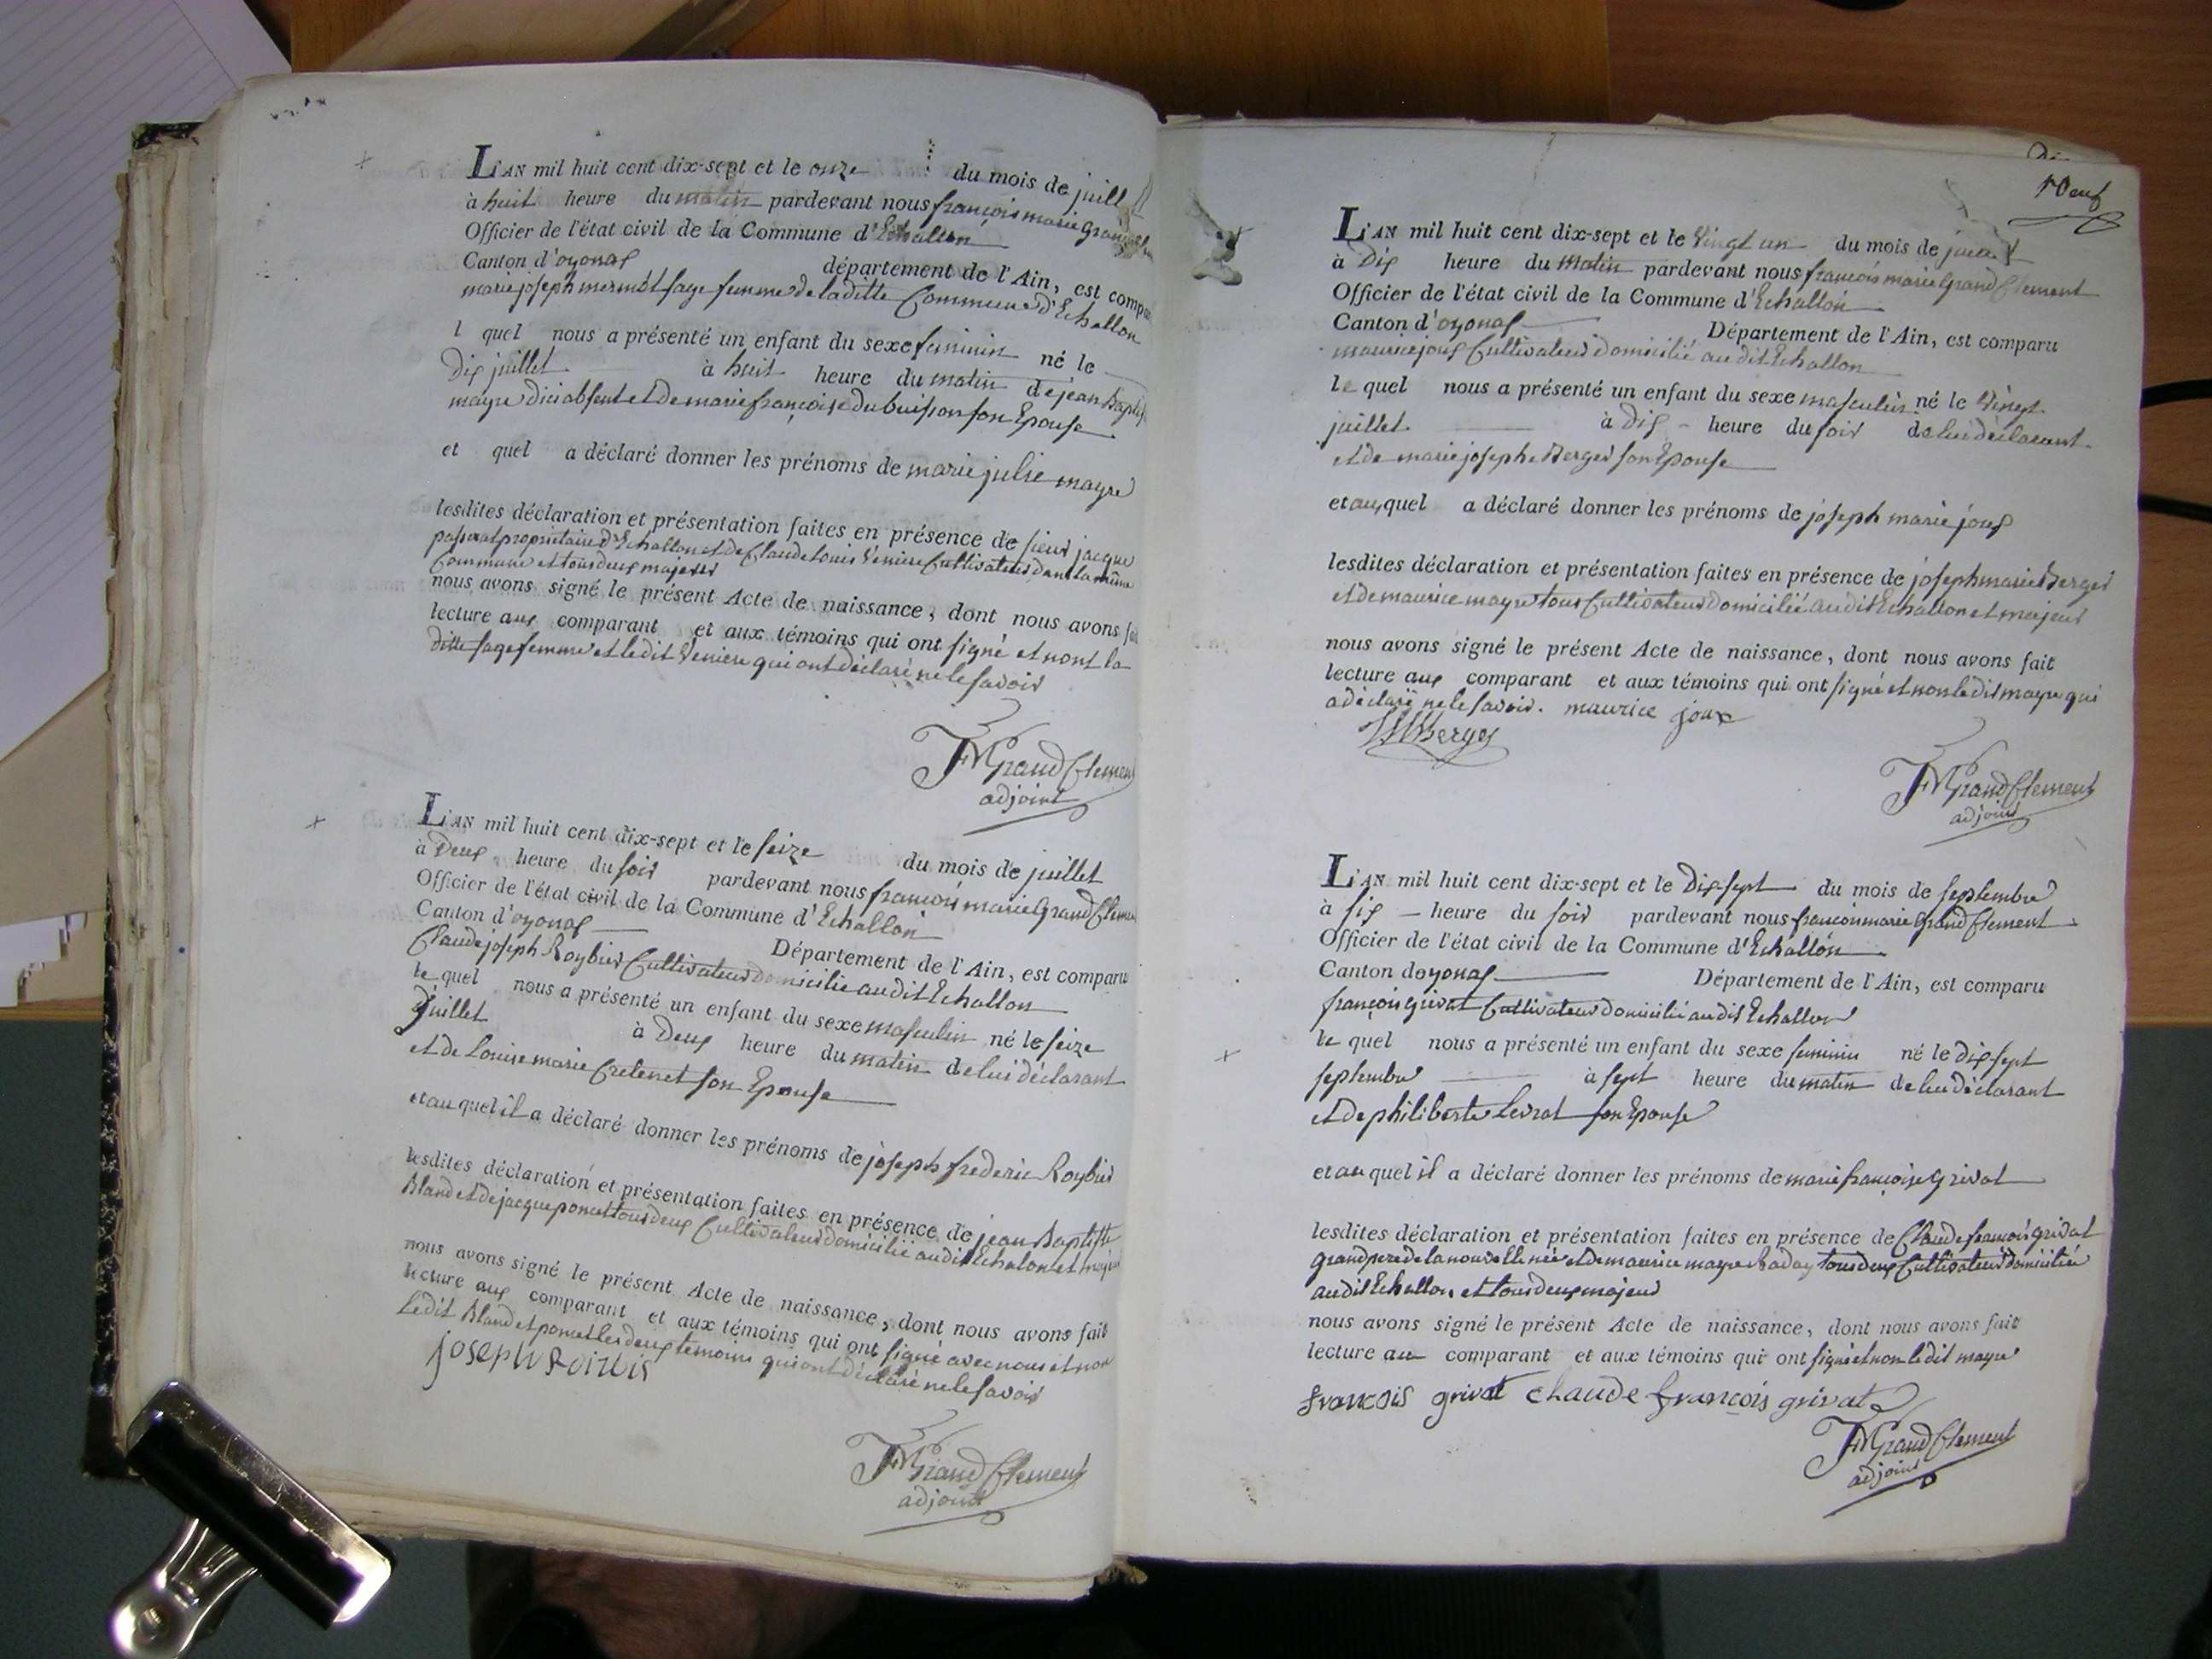 L'AN mil huit cent dix-sept et le onze du mois de juill
à huit heure du matin pardevant nous françois marie grand
Officier de l'état civil de la Commune d'Echallon
Canton d'oyonax département de l'Ain, est compa
marie joseph mermet sage femme de laditte Commune d'Echallon
l quel nous a présenté un enfant du sexe feminin né le
Dix juillet à huit heure du matin de jean Baptis
mayre dici absent et De marie françoise Dubuisson son Epouse
et quel a déclaré donner les prénoms de marie julie mayre
lesdites déclaration et présentation faites en présence de sieur jacque
passerat propriétaire D'Echallon et de Claude Louis Veniere Cultivateur dans la même
Commune et tous deux majeurs
nous avons signé le présent Acte de naissance, dont nous avons fai
lecture aux comparant et aux témoins qui ont signé et nont la
ditte sage femme et ledit Veniere qui ont déclaré ne le savoir
FM Grand Clement
adjoint
L'AN mil huit cent dix-sept et le seize du mois de juillet
à Deux heure du soir pardevant nous françois marie Grand Cleme
Officier de l'état civil de la Commune d'Echallon
Canton d'oyonax Département de l'Ain, est comparu
Claude joseph Roybier Cultivateur Domicilié audit Echallon
le quel nous a présenté un enfant du sexe masculin né le seize
juillet à Deux heure du matin de lui déclarant
et de Louise marie Cretenet son Epouse
et au quel il a déclaré donner les prénoms de joseph frederic Roybier
lesdites déclaration et présentation faites en présence de jean Baptiste
Bland et de jacque poncet tous deux Cultivateurs domicilié audit Echalon et majeur
nous avons signé le présent Acte de naissance, dont nous avons fait
lecture aux comparant et aux témoins qui ont signé avec nous et non
ledit Bland et poncet les deux temoins qui ont déclaré ne le savoir
joseph
FM Grand Clement
adjoint
Neuf
L'AN mil huit cent dix-sept et le Vingt un du mois de juillet
à Dix heure du matin pardevant nous françois marie Grand Clement
Officier de l'état civil de la Commune d'Echallon
Canton d'oyonax Département de l'Ain, est comparu
maurice joux Cultivateur domicilié audit Echallon
le quel nous a présenté un enfant du sexe masculin né le Vingt
juillet à Dix heure du soir de lui déclarant
et de marie josephe Berger son Epouse
et au quel a déclaré donner les prénoms de joseph marie joux
lesdites déclaration et présentation faites en présence de joseph marie Berger
et de maurice mayre tous Cultivateur domicilié audit Echallon et majeur
nous avons signé le présent Acte de naissance, dont nous avons fait
lecture aux comparant et aux témoins qui ont signé et non ledit mayre qui
a déclaré ne le savoir. maurice joux
Berger
FM Grand Clement
adjoint
L'AN mil huit cent dix-sept et le Dix-sept du mois de septembre
à six heure du soir pardevant nous françois marie Grand Clement
Officier de l'état civil de la Commune d'Echallon
Canton doyonax Département de l'Ain, est comparu
françois grivat Cultivateur domicilié audit Echallon
le quel nous a présenté un enfant du sexe feminin né le dix sept
septembre à sept heure du matin de lui déclarant
et de philiberte Levrat son Epouse
et au quel il a déclaré donner les prénoms de marie françoise grivat
lesdites déclaration et présentation faites en présence de Claude françois grivat
grand pere de la nouvelle née et de maurice mayre tous deux Cultivateur domicilié
audit Echallon et tous deux majeur
nous avons signé le présent Acte de naissance, dont nous avons fait
lecture au comparant et aux témoins qui ont signé et non ledit mayre
francois grivat chaude françois grivat
FM Grand Clement
adjoint